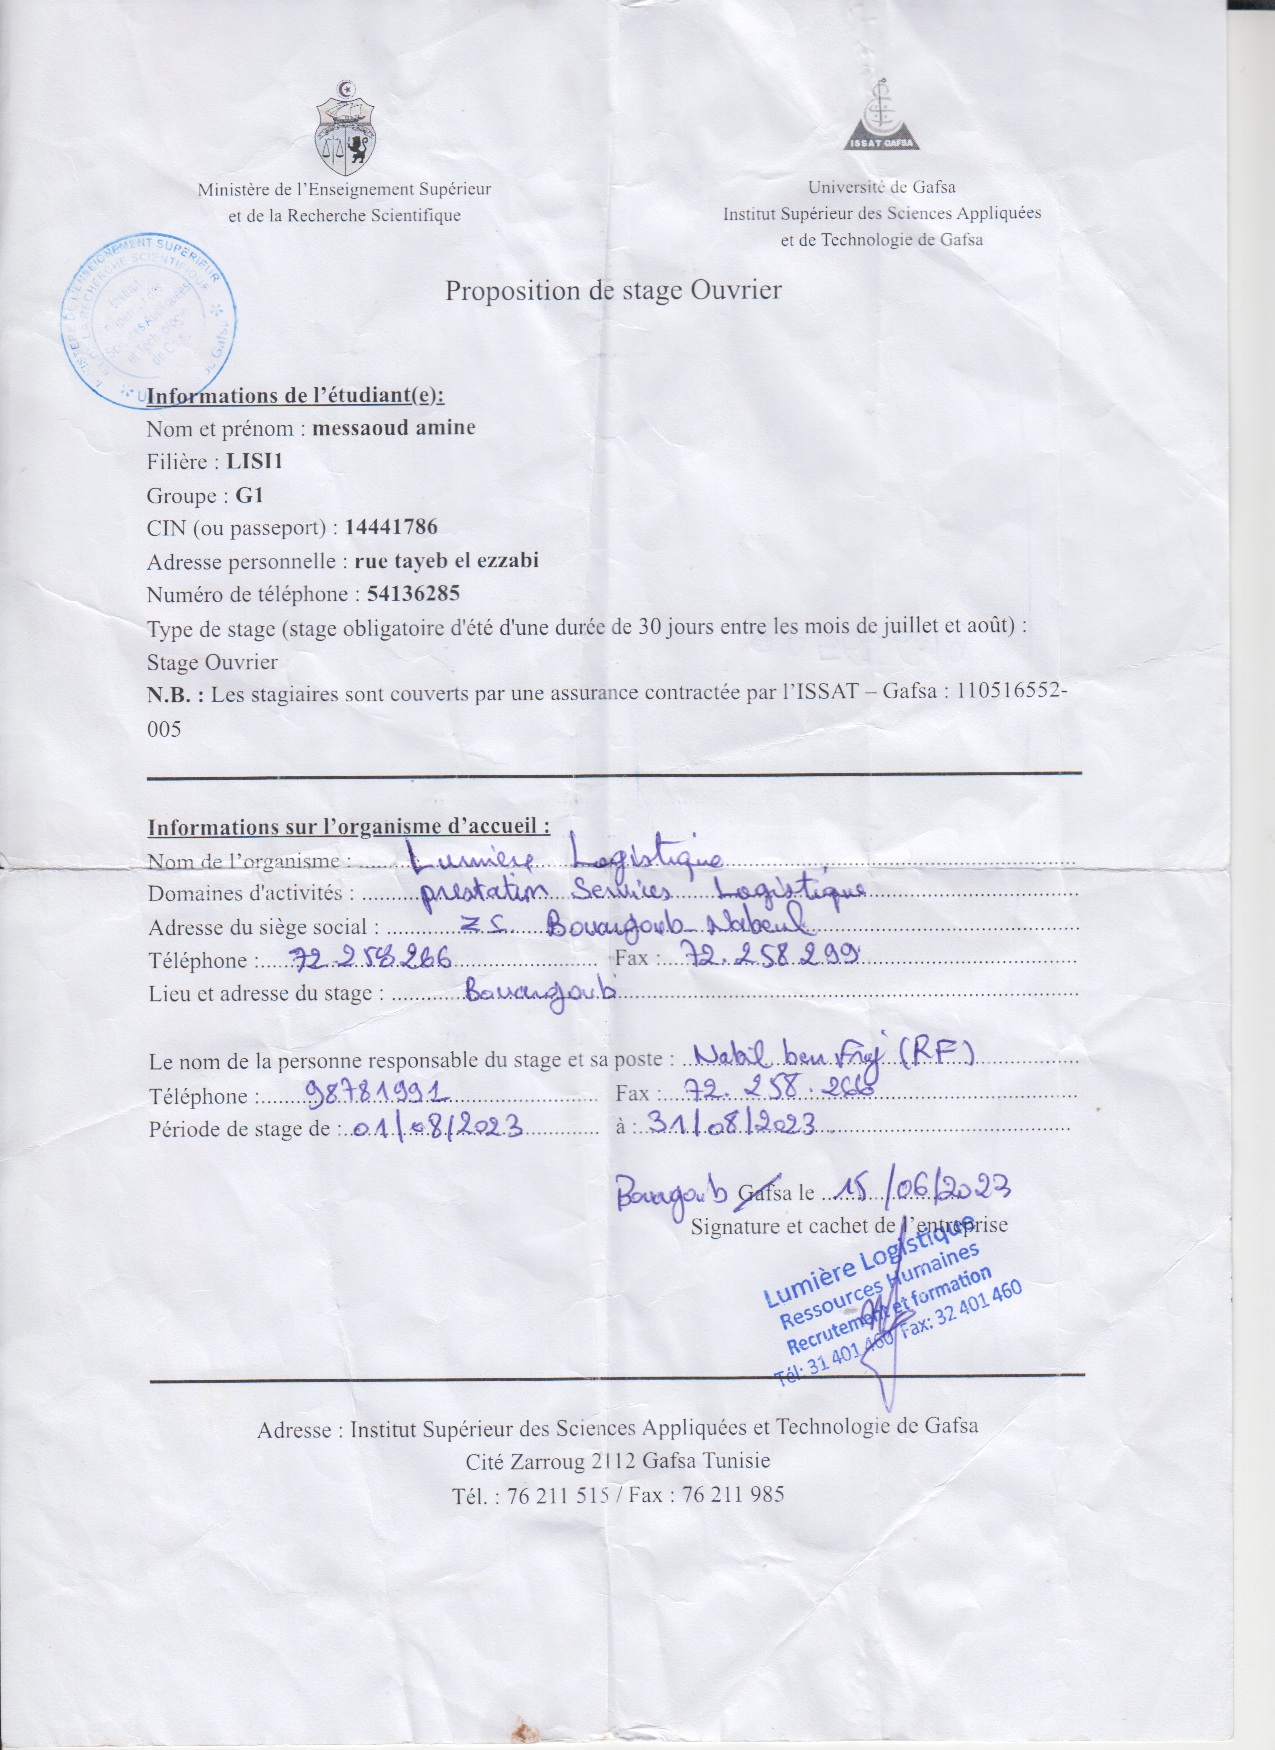 ISSAT GAFSA
Ministère de l'Enseignement Supérieur
et de la Recherche Scientifique
Université de Gafsa
Institut Supérieur des Sciences Appliquées
et de Technologie de Gafsa
Proposition de stage Ouvrier
Informations de l'étudiant(e):
Nom et prénom : messaoud amine
Filière : LISI1
Groupe : G1
CIN (ou passeport) : 14441786
Adresse personnelle : rue tayeb el ezzabi
Numéro de téléphone : 54136285
Type de stage (stage obligatoire d'été d'une durée de 30 jours entre les mois de juillet et août) :
Stage Ouvrier
N.B. : Les stagiaires sont couverts par une assurance contractée par l'ISSAT – Gafsa : 110516552-
005
Informations sur l'organisme d'accueil :
Nom de l'organisme : Lumière Logistique
Domaines d'activités : prestation Services Logistique
Adresse du siège social : Bouargoub Nabeul
Téléphone : 72 258 266 Fax : 72. 258 299
Lieu et adresse du stage : Bouargoub
Le nom de la personne responsable du stage et sa poste : Nabil ben Frej (RF)
Téléphone : 98781991 Fax : 72. 258. 266
Période de stage de : 01/08/2023 à : 31/08/2023
Bouargoub Gafsa le 15/06/2023
Signature et cachet de l'entreprise
Lumière Logistique
Ressources Humaines
Recrutement et formation
Tél: 31 401 460 Fax: 32 401 460
Adresse : Institut Supérieur des Sciences Appliquées et Technologie de Gafsa
Cité Zarroug 2112 Gafsa Tunisie
Tél. : 76 211 515 / Fax : 76 211 985